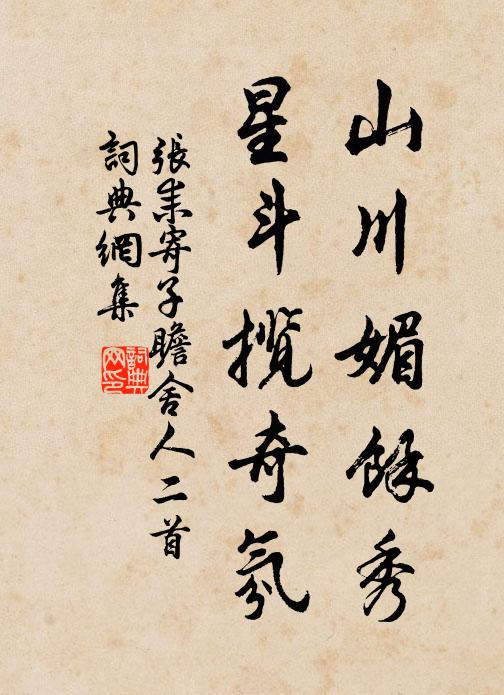 山川媚餘秀
星斗攬奇氛
張耒寄子瞻舍人二首
詞典網集
詞典網印